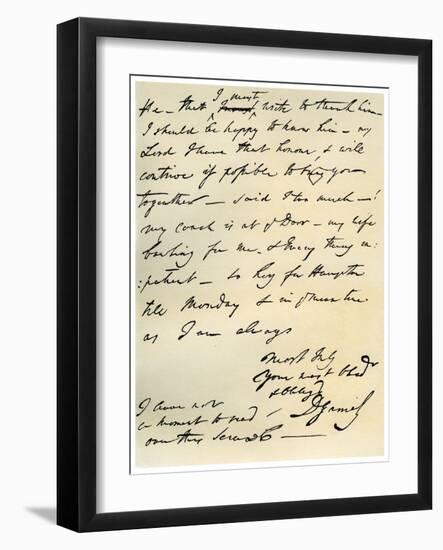 I must
He – that write to thank him –
I should be happy to know him – my
Lord I have that honour, & will
contrive if possible to bring you
together – said I too much –
my coach is at yͤ Door – my wife
bawling for me, & Every thing im
:patient – so Hey for Hampton
till Monday & in yͤ mean time
as I am always
Most truly
Your most obedᵗ
& obligᵈ
D Garrick
I have not
a moment to read
over this scrawl –